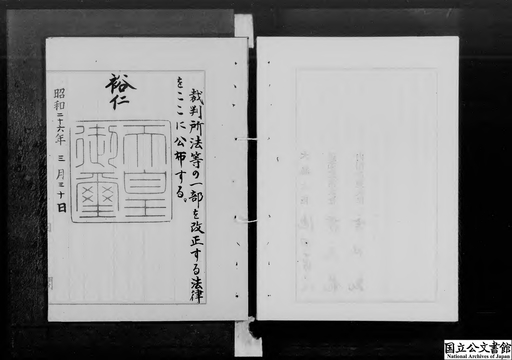 裁判所法等の一部を改正する法律
をここに公布する。
裕仁
天皇
御璽
昭和二十六年三月三十日
国立公文書館
National Archives of Japan